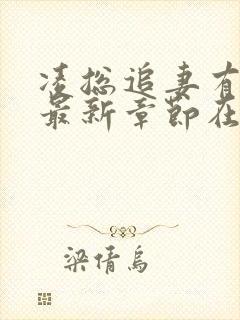 凌总追妻有
最新章节在
梁倩乌